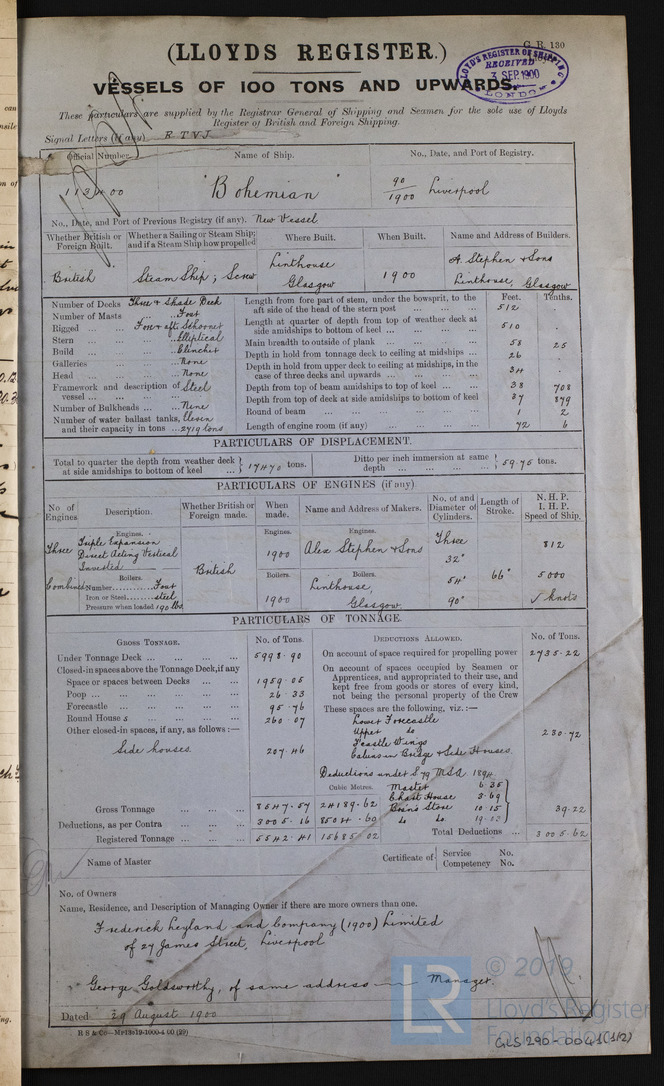 G. R. 130
(LLOYDS REGISTER.)
LLOYD'S REGISTER OF SHIPPING
RECEIVED
3 SEP. 1900
LONDON
VESSELS OF 100 TONS AND UPWARDS.
These particulars are supplied by the Registrar General of Shipping and Seamen for the sole use of Lloyds
Register of British and Foreign Shipping.
Signal Letters (if any) R T V J
Official Number. Name of Ship. No., Date, and Port of Registry.
113400 "Bohemian" 90/1900 Liverpool
No., Date, and Port of Previous Registry (if any). New Vessel
Whether British or Foreign Built. Whether a Sailing or Steam Ship; and if a Steam Ship how propelled Where Built. When Built. Name and Address of Builders.
British Steam Ship; Screw Linthouse Glasgow 1900 A. Stephen & Sons Linthouse, Glasgow
Feet. Tenths.
Number of Decks Three & Shade Deck
Number of Masts ... Four
Rigged ... Fore & aft Schooner
Stern ... Elliptical
Build ... Clincher
Galleries ... None
Head ... None
Framework and description of vessel ... Steel
Number of Bulkheads ... Nine
Number of water ballast tanks, and their capacity in tons ... Eleven 2719 tons
Length from fore part of stem, under the bowsprit, to the aft side of the head of the stern post ... 512 .
Length at quarter of depth from top of weather deck at side amidships to bottom of keel ... 510 .
Main breadth to outside of plank ... 58 25
Depth in hold from tonnage deck to ceiling at midships ... 26 .
Depth in hold from upper deck to ceiling at midships, in the case of three decks and upwards ... 34 .
Depth from top of beam amidships to top of keel ... 38 708
Depth from top of deck at side amidships to bottom of keel 37 879
Round of beam ... 1 2
Length of engine room (if any) ... 72 6
PARTICULARS OF DISPLACEMENT.
Total to quarter the depth from weather deck at side amidships to bottom of keel ... 17470 tons. Ditto per inch immersion at same depth ... 59.75 tons.
PARTICULARS OF ENGINES (if any)
No. of Engines. Description. Whether British or Foreign made. When made. Name and Address of Makers. No. of and Diameter of Cylinders. Length of Stroke. N. H. P. I. H. P. Speed of Ship.
Engines. Engines. Engines.
Three Triple Expansion Direct Acting Vertical Inverted British 1900 Alex Stephen & Sons Three 32" 812
Combined Boilers. Boilers. Boilers. 54" 66" 5000
Number ... Four Linthouse,
Iron or Steel ... Steel 1900 Glasgow 90" knots
Pressure when loaded 190 lbs.
PARTICULARS OF TONNAGE.
GROSS TONNAGE. No. of Tons. DEDUCTIONS ALLOWED. No. of Tons.
Under Tonnage Deck ... 5998.90
Closed-in spaces above the Tonnage Deck, if any
Space or spaces between Decks ... 1959.05
Poop ... 26.33
Forecastle ... 95.76
Round Houses ... 260.07
Other closed-in spaces, if any, as follows:—
Side houses. 207.46
Gross Tonnage ... 8547.57 24189.62
Deductions, as per Contra ... 3005.16 8504.60
Registered Tonnage ... 5542.41 15685.02
On account of space required for propelling power 2735.22
On account of spaces occupied by Seamen or Apprentices, and appropriated to their use, and kept free from goods or stores of every kind, not being the personal property of the Crew
These spaces are the following, viz.:—
Lower Forecastle
Upper do 230.72
Fcastle Wings
Cabins in Bridge & Side Houses.
Deductions under S 79 MSA 1894
Cubic Metres. Master 6.35
Chart House 3.69
Bosn's Store 10.15 39.22
do do 19.03
Total Deductions ... 3005.62
Name of Master
Certificate of Service No.
Competency No.
No. of Owners
Name, Residence, and Description of Managing Owner if there are more owners than one.
Frederick Leyland and Company (1900) Limited
of 27 James Street, Liverpool
George Goldsworthy, of same address — Manager.
Dated 29 August 1900
LR © 2019
Lloyd's Register
Foundation
GLS 290-0041(1/2)